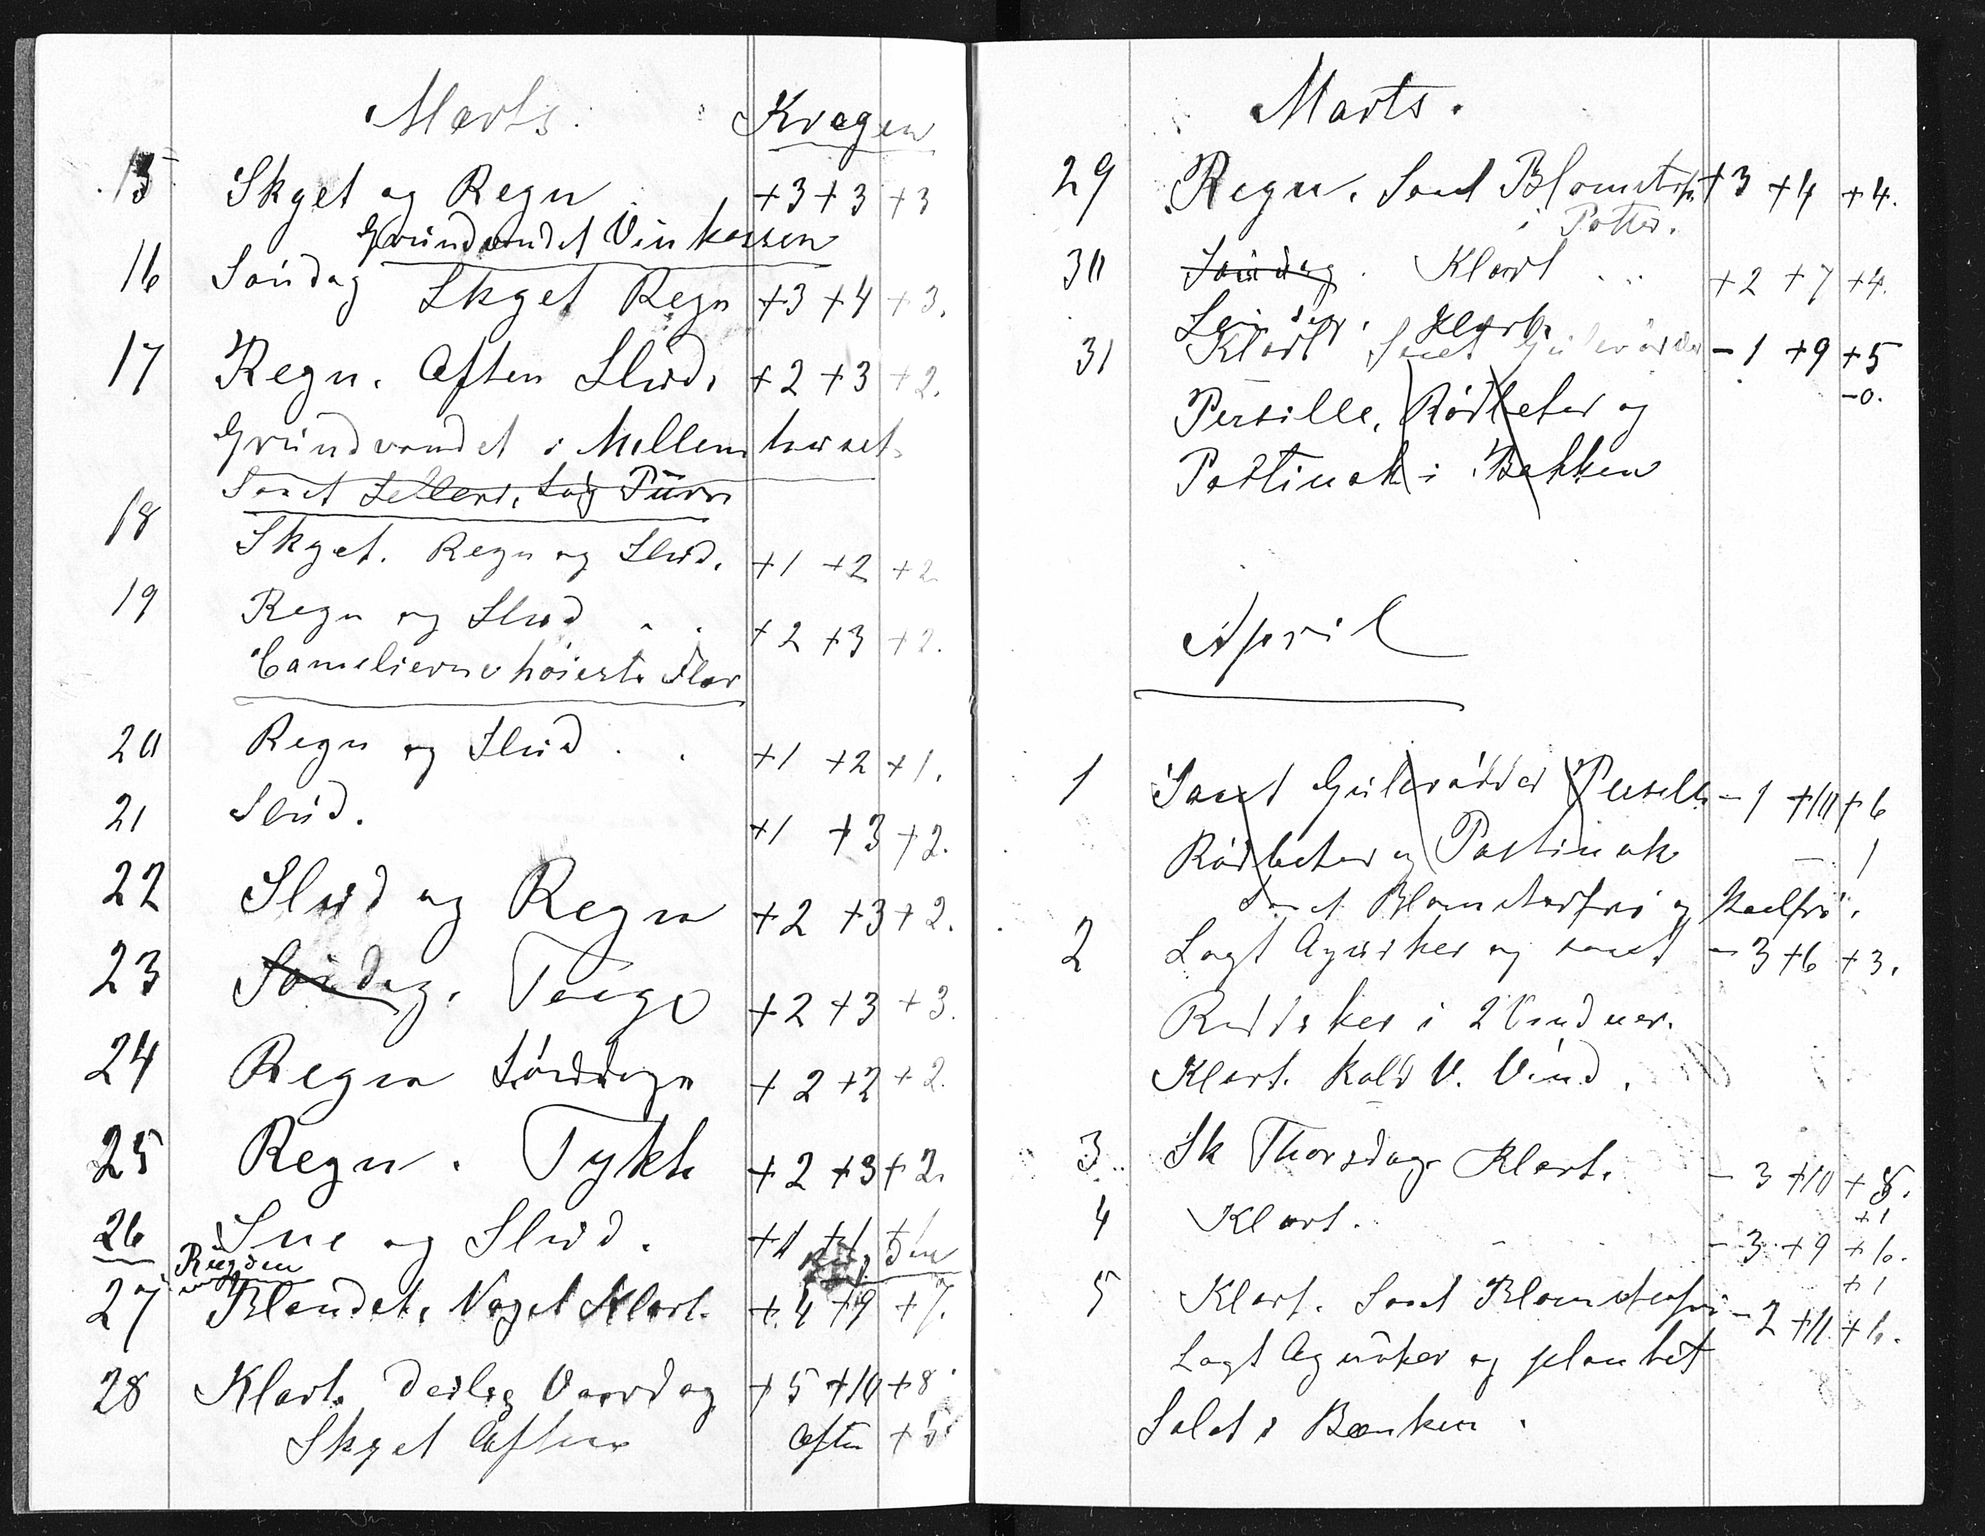 Marts. Kragen
15 Skyet og Regn. +3 +3 +3
Grundvandet Vinkassen
16 Søndag Skyet Regn +3 +4 +3.
17 Regn. Aften Slud. +2 +3 +2.
Grundvandet i Mellemhuset.
Saaet Selleri, Løg Purri
18 Skyet. Regn og Slud. +1 +2 +2
19 Regn og Slud . . +2 +3 +2.
Camelierne høieste Flor
20 Regn og Slud . . +1 +2 +1.
21 Slud. +1 +3 +2.
22 Slud og Regn +2 +3 +2.
23 Søndag. Taage +2 +3 +3.
24 Regn +2 +2 +2.
25 Regn. Tykt +2 +3 +2.
26 Sne og Slud. +1 +1 +1
Rugden
27 Blandet. Noget Klart. +4 +9 +7.
28 Klart. Deilig Vaardag +5 +10 +8
Skyet Aften Aften +5
Marts.
29 Regn. Saaet Blomsterfr +3 +4 +4.
i Potter.
30 Søndag. Klart .. +2 +7 +4.
Søndag. Klart.
31 Klart Saaet Gulerødder -1 +9 +5
-0.
Persille, Rødbeder og
Pastinak i Bakken
April
1 Saaet Gulerødder Persille -1 +10 +6
Rødbeder og Pastinak - 1
Saaet Blomsterfrø og Kaalfrø.
2 Lagt Agurker og saaet -3 +6 +3.
Raddiker i 2 Vinduer.
Klart. Kold V. Vind.
3 Sk Thorsdag. Klart. -3 +10 +8.
+1
4 Klart. -3 +9 +6.
+1
5 Klart. Saaet Blomsterfrø -2 +11 +6.
Lagt Agurker og plantet
Salat i Bænken.